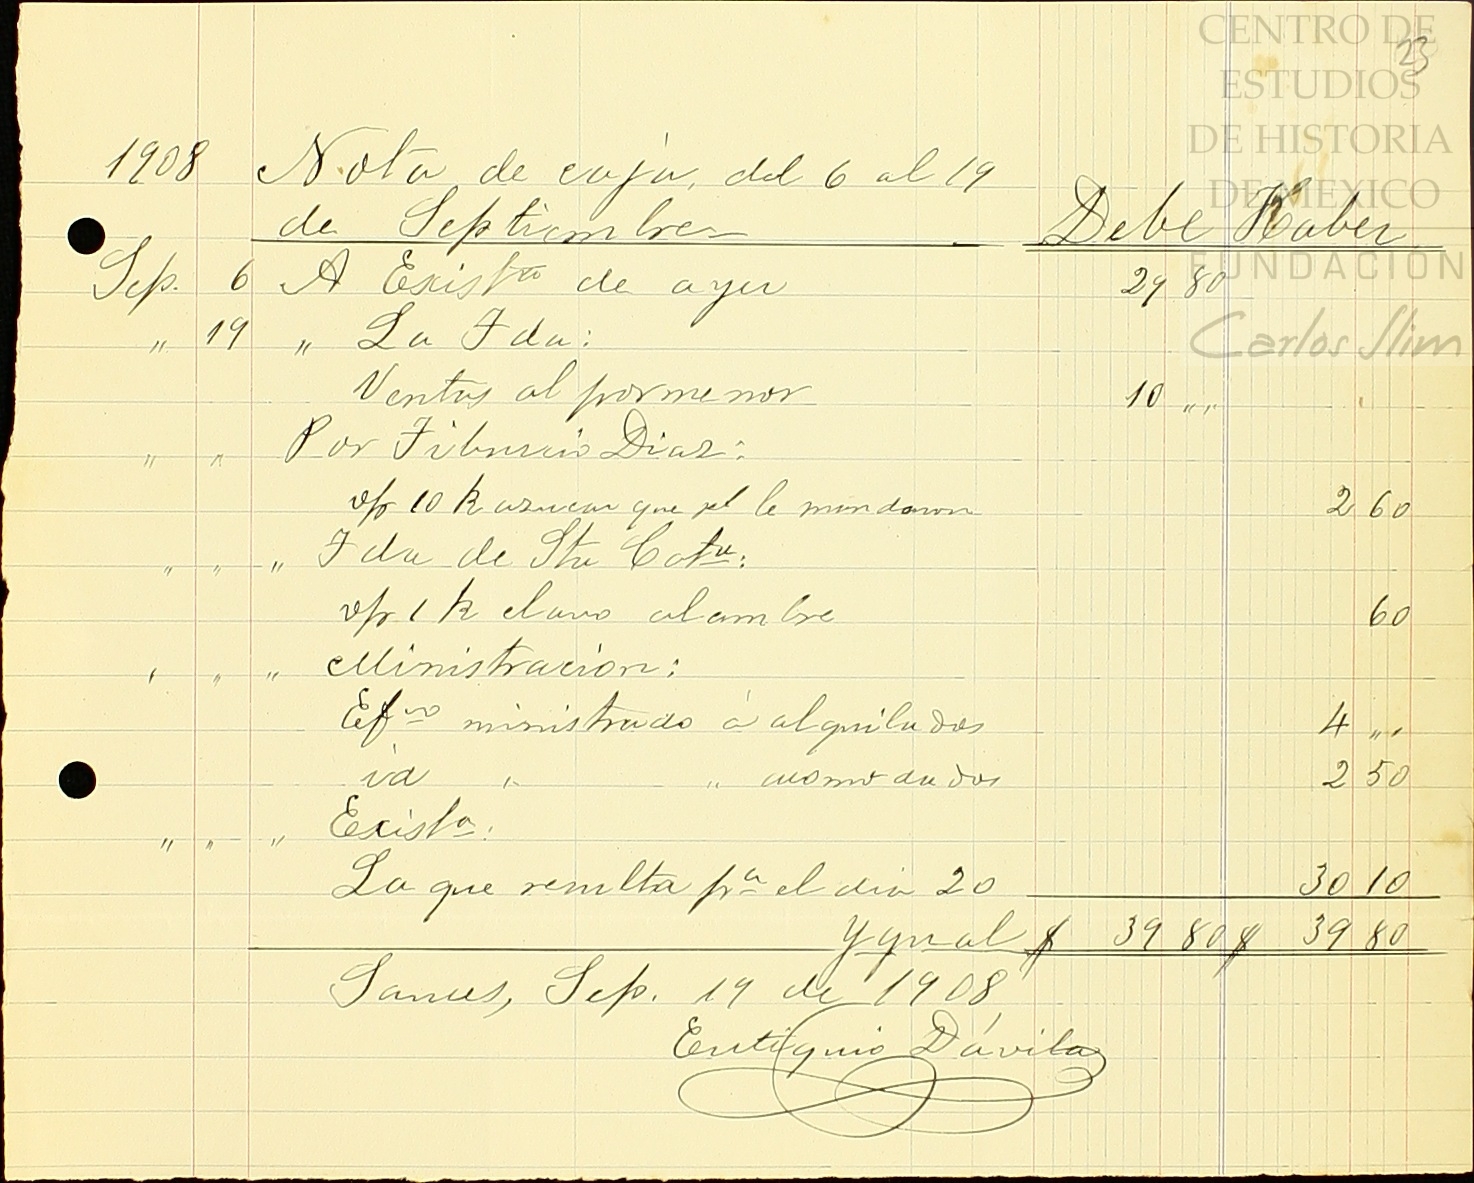 CENTRO DE
ESTUDIOS
DE HISTORIA
DE MEXICO
FUNDACIÓN
Carlos Slim
23
1908 Nota de caja, del 6 al 19
de Septiembre Debe Haber
Sep. 6 A Exist.ª de ayer 29 80
„ 19 „ La Fda:
Ventas al pormenor 10 „„
„ „ Por Tiburcio Diaz:
v/p 10 k azucar que se le mandaron 2 60
„ „ „ Fda de Sta Catª:
v/p 1 k clavo alambre 60
„ „ „ Ministracion:
Efvo ministrado á alquilados 4 „„
id „ „ acomodados 2 50
„ „ „ Existª:
La que resulta pª el dia 20 30 10
Ygual $ 39 80 $ 39 80
Sauces, Sep. 19 de 1908
Eutiquio Dávila